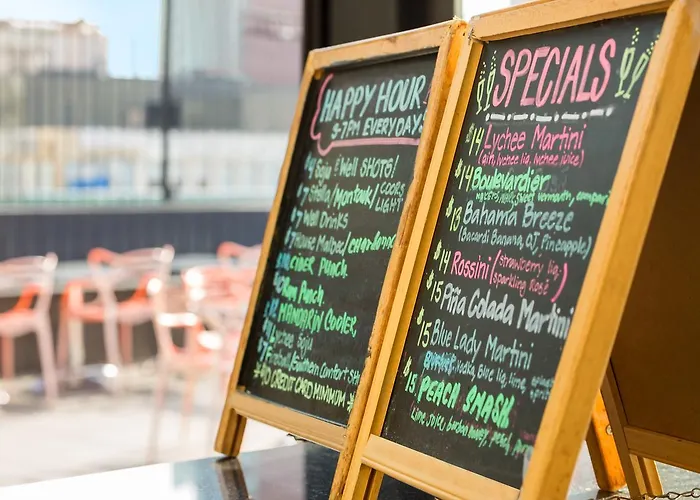 HAPPY HOUR
5-7PM EVERYDAY!
WELL SHOTS!
Stella/Montauk/COORS LIGHT
Well DRINKS
CIDER PUNCH
PUNCH
MANDARIN COOLER
Southern Comfort
NO CREDIT CARD MINIMUM
SPECIALS
$14 Lychee Martini
(gin, lychee liq, lychee juice)
$14 Boulevardier
sweet vermouth, campari
$13 Bahama Breeze
(Bacardi Banana, OJ, Pineapple)
$14 Rossini (strawberry liq,
sparkling rosé)
$15 Piña Colada Martini
$15 Blue Lady Martini
vodka, blue liq, lime,
$15 PEACH SMASH
Lime juice, bourbon, honey, peach